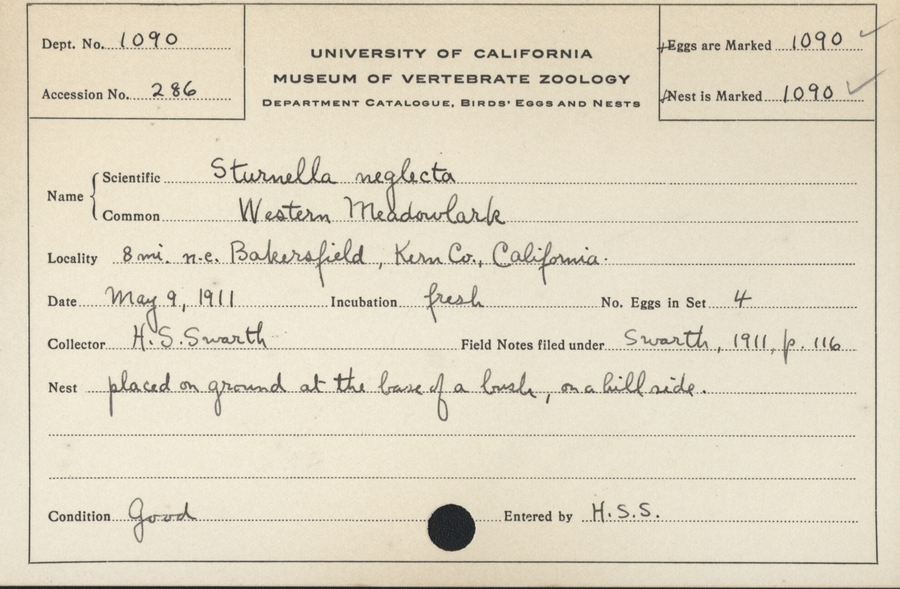 Dept. No. 1090
Accession No. 286
UNIVERSITY OF CALIFORNIA
MUSEUM OF VERTEBRATE ZOOLOGY
DEPARTMENT CATALOGUE, BIRDS' EGGS AND NESTS
Eggs are Marked 1090 ✓
Nest is Marked 1090 ✓
Name
Scientific Sturnella neglecta
Common Western Meadowlark
Locality 8 mi. n.e. Bakersfield, Kern Co., California.
Date May 9, 1911 Incubation fresh No. Eggs in Set 4
Collector H.S. Swarth Field Notes filed under Swarth, 1911, p. 116
Nest placed on ground at the base of a bush, on a hill side.
Condition Good Entered by H.S.S.